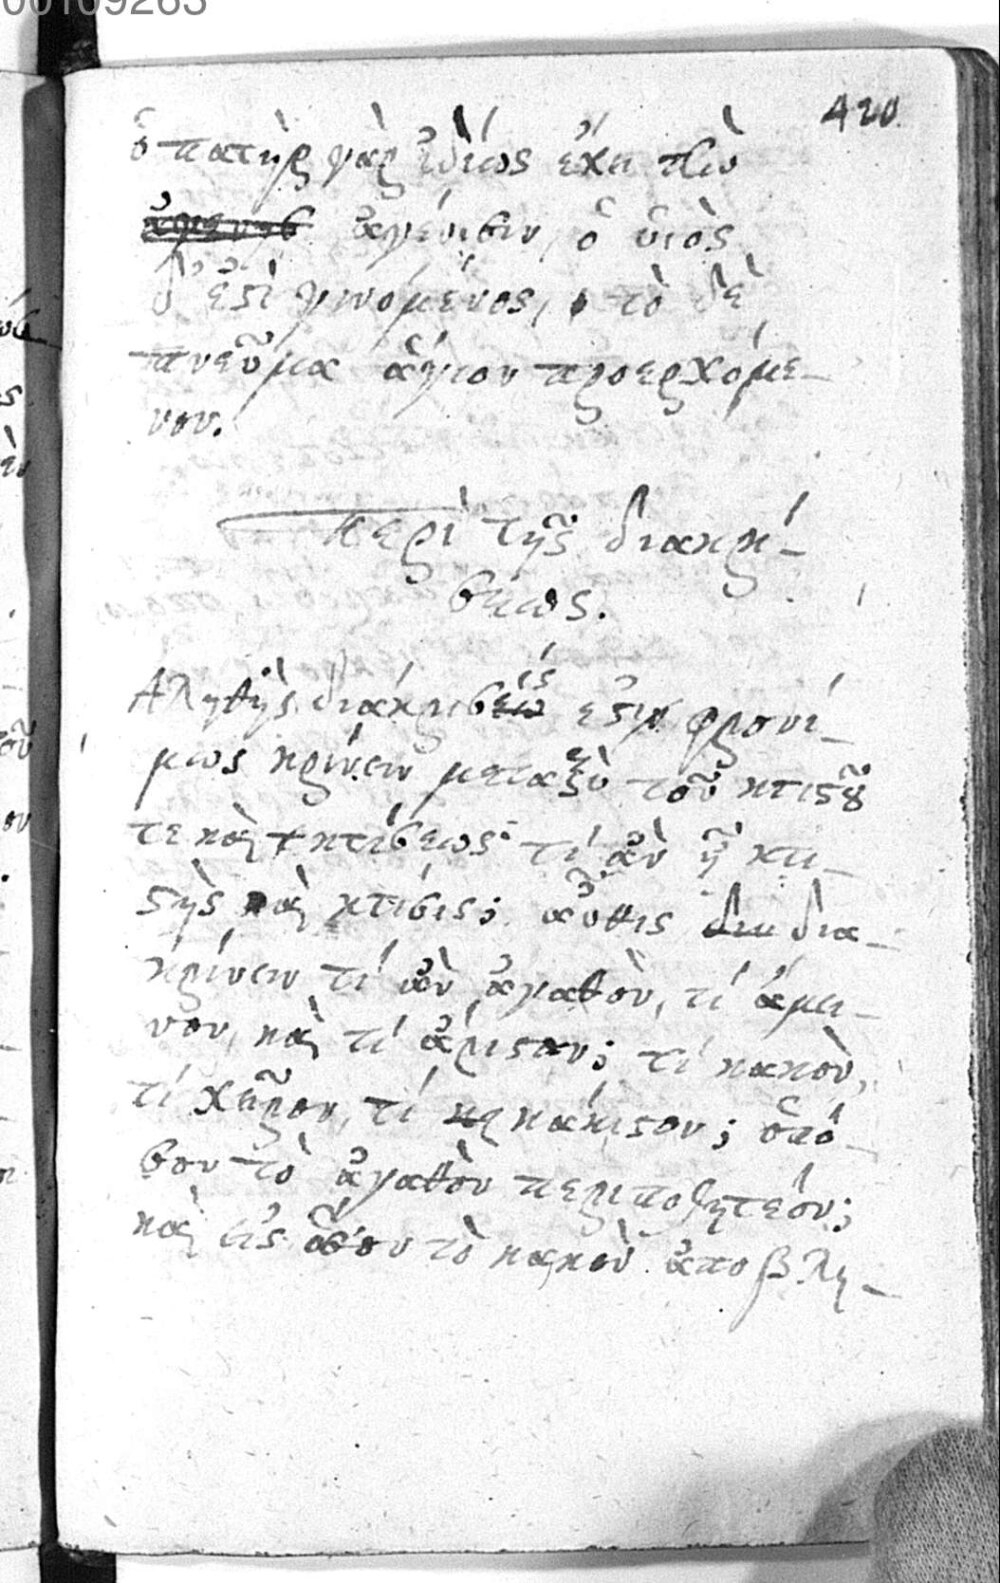 00109263
420
ὁ πατὴρ γὰρ ἰδίως ἔχει τὴν
ἀγένισιν, ὁ ὑιὸς
δ' ἐστὶ γινομένος, τὸ δὲ
πνεῦμα ἅγιον προερχόμε-
νον.
περὶ τῆς διακρί-
σεως.
Αληθὴς διάκρισις ἐστὶ φρονί-
μως κρίνειν μεταξὺ τοῦ κτιστοῦ
τε καὶ κτίσεως· τί ἂν ᾖ κτι-
στὴς καὶ κτίσις; αὖθις δια-
κρίνειν τί ἂν ἀγαθὸν, τί ἄμει-
νον, καὶ τί ἄριστον; τί κακὸν,
τί χεῖρον, τί κάκιστον; ὁπό-
σον τὸ ἀγαθὸν περιποιητέον;
καὶ εἰς ὅσον τὸ κακὸν ἀποβλη-